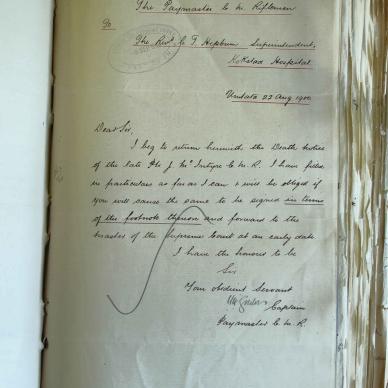 The Paymaster C. M. Riflemen
To
The Revd. C. T. Hepburn Superintendent,
Kokstad Hospital.
Umtata 23 Aug 1900
Dear Sir,
I beg to return herewith the Death Notice
of the late Pte J. McIntyre C. M. R. I have filled
in particulars as far as I can & will be obliged if
you will cause the same to be signed in terms
of the footnote thereon and forward to the
Master of the Supreme Court at an early date
I have the honour to be
Sir
Your obedient Servant
Captain
Paymaster C. M. R.